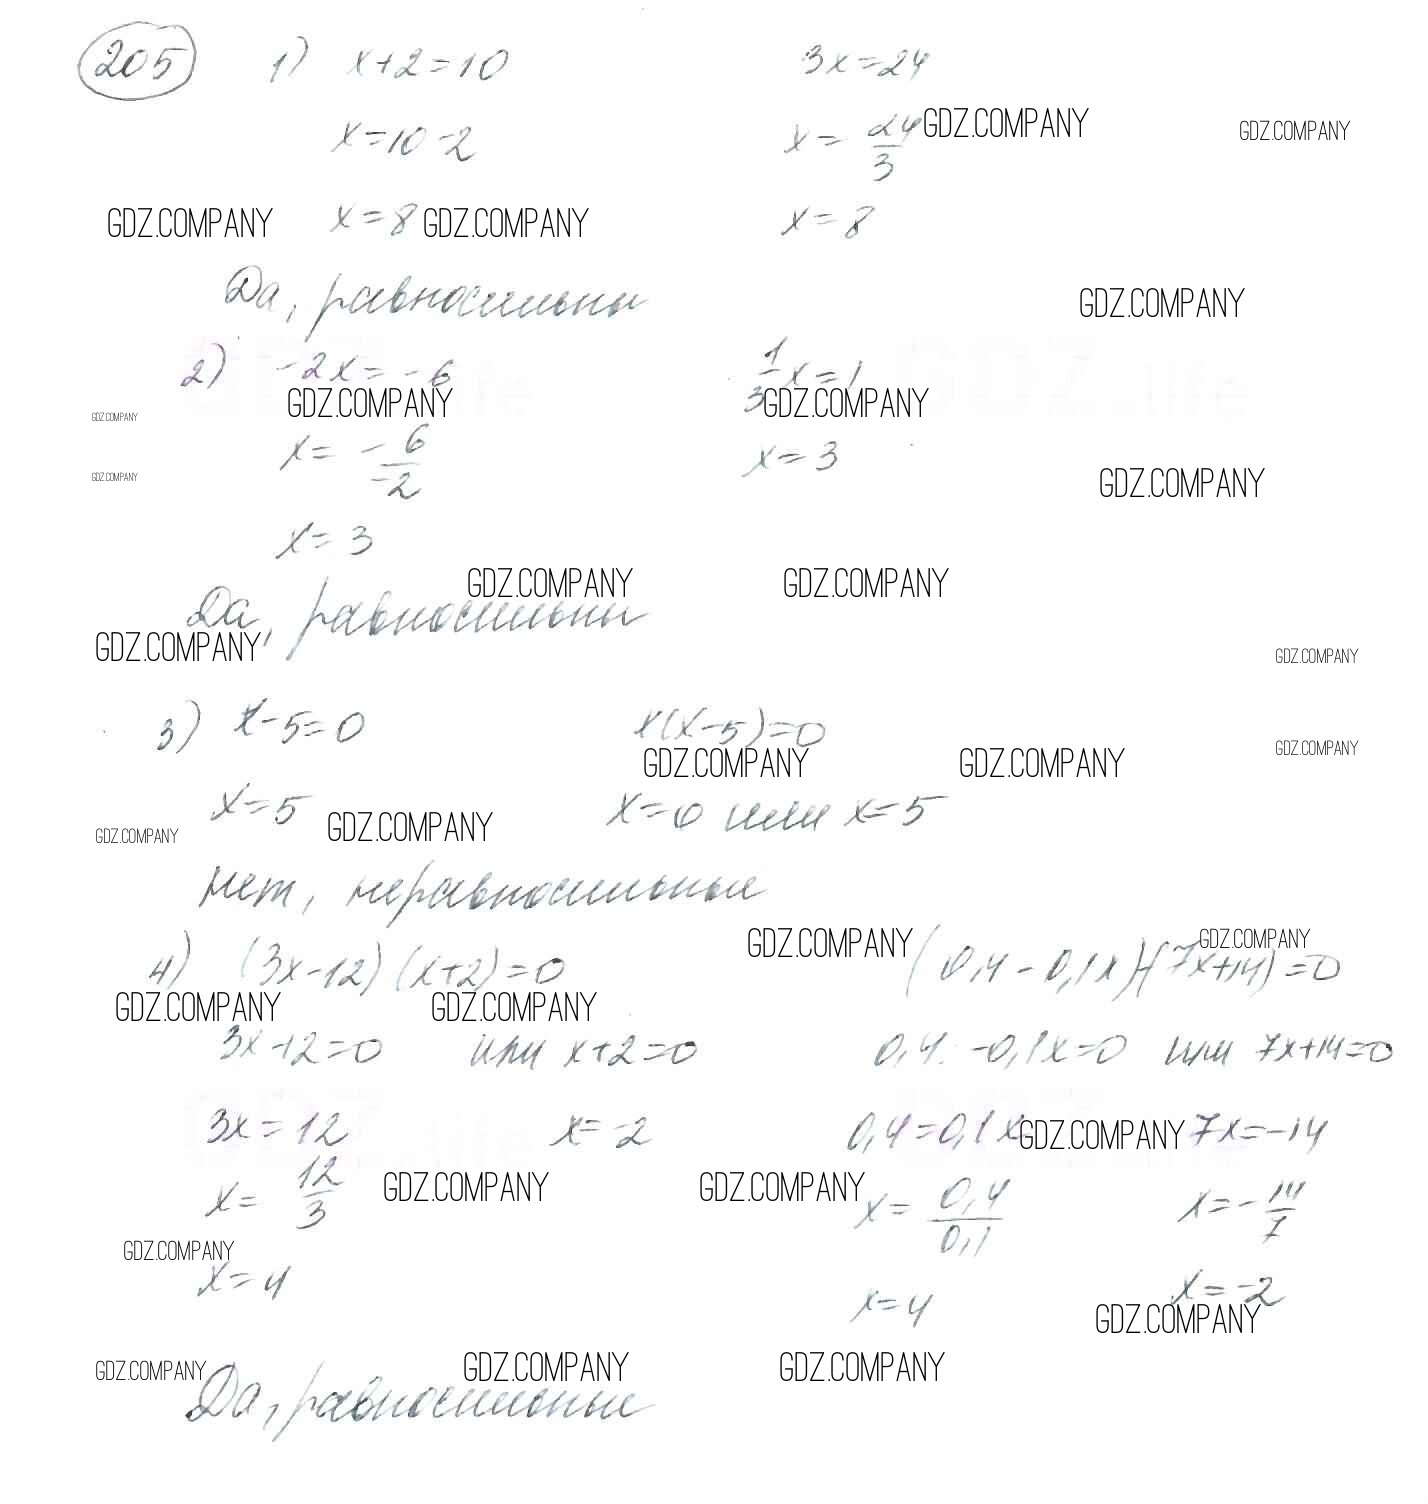 205 1) x+2=10 3x=24
x=10-2 x= 24/3 GDZ.COMPANY GDZ.COMPANY
GDZ.COMPANY x=8 GDZ.COMPANY x=8
Да, равносильны GDZ.COMPANY
2) -2x=-6 1/3 x=1
GDZ.COMPANY GDZ.COMPANY GDZ.COMPANY
x= -6/-2 x=3
GDZ.COMPANY GDZ.COMPANY
x=3
GDZ.COMPANY GDZ.COMPANY
Да, равносильны
GDZ.COMPANY GDZ.COMPANY
3) x-5=0 x(x-5)=0
GDZ.COMPANY GDZ.COMPANY GDZ.COMPANY
x=5 GDZ.COMPANY x=0 или x=5
GDZ.COMPANY
Нет, неравносильные
GDZ.COMPANY GDZ.COMPANY
4) (3x-12)(x+2)=0 (0,4-0,1x)·(7x+14)=0
GDZ.COMPANY GDZ.COMPANY
3x-12=0 или x+2=0 0,4-0,1x=0 или 7x+14=0
3x=12 x=-2 0,4=0,1x GDZ.COMPANY 7x=-14
x= 12/3 GDZ.COMPANY GDZ.COMPANY x= 0,4/0,1 x=- 14/7
GDZ.COMPANY
x=4 x=4 x=-2
GDZ.COMPANY
GDZ.COMPANY GDZ.COMPANY GDZ.COMPANY
Да, равносильные